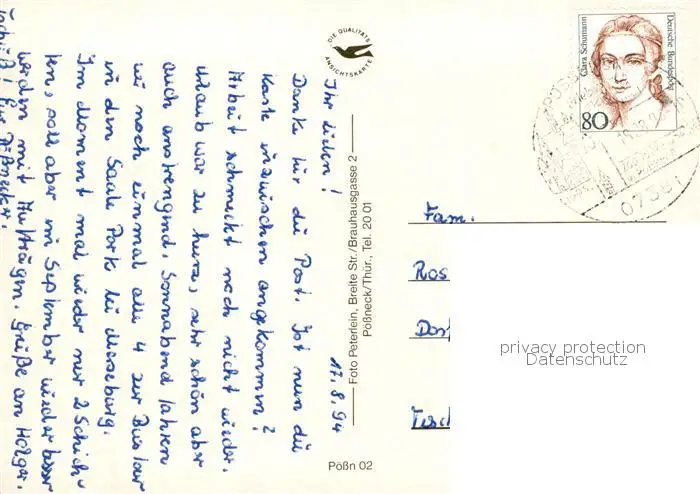 17.8.94
Ihr Lieben!
Danke für die Post. Ist nun die
Karte inzwischen angekommen?
Arbeit schmeckt noch nicht wieder.
Urlaub war zu kurz, sehr schön aber
auch anstrengend. Sonnabend fahren
wir noch einmal alle 4 zur Bustour
in den Saale Park bei Merseburg.
Im Moment mal wieder nur 2 Schich-
ten, soll aber im September wieder besser
werden mit Aufträgen. Grüße an Holger.
Tschüß! Eure Pößnecker.
DIE QUALITÄTS
ANSICHTSKARTE
Foto Peterlein, Breite Str./Brauhausgasse 2
Pößneck/Thür., Tel. 20 01
Pößn 02
Clara Schumann
Deutsche Bundespost
80
07381
Fam.
Ros
Dorf
Tisch
privacy protection
Datenschutz